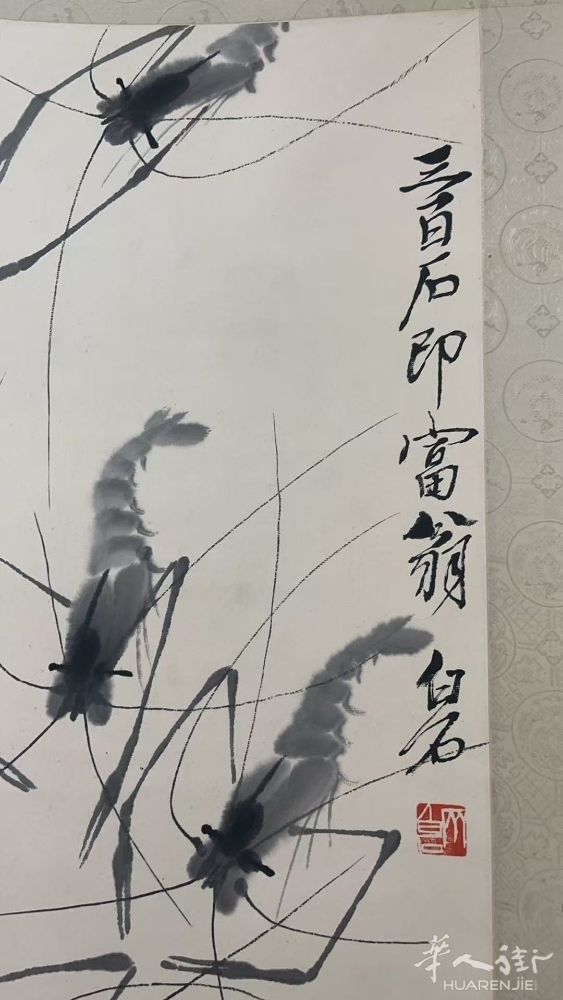 三百石印富翁 白石
華人街
HUARENJIE